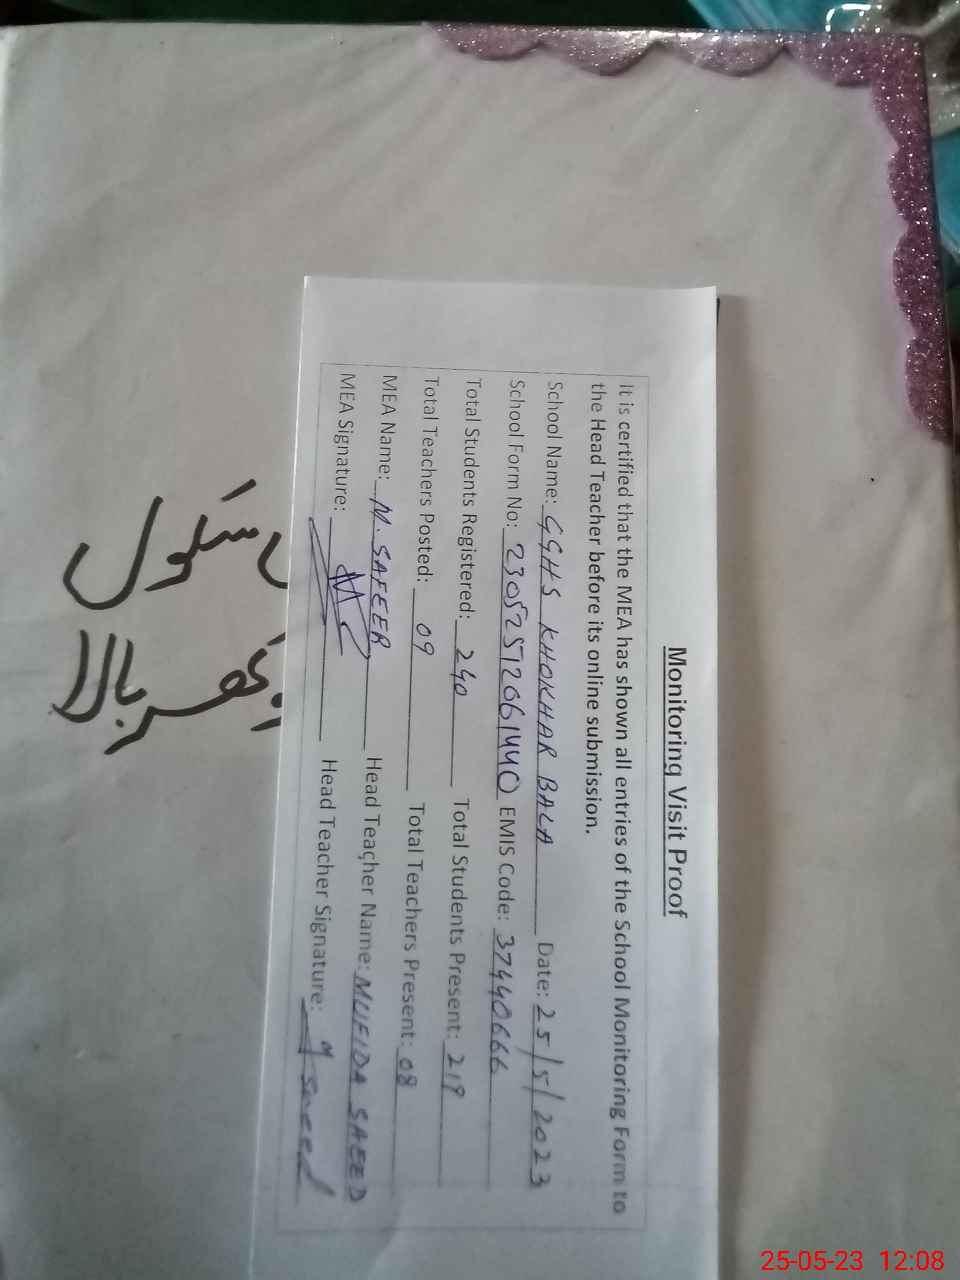 Monitoring Visit Proof
It is certified that the MEA has shown all entries of the School Monitoring Form to
the Head Teacher before its online submission.
School Name: GGHS KHOKHAR BALA Date: 25/5/2023
School Form No: 23052512061440 EMIS Code: 37440666
Total Students Registered: 240 Total Students Present: 219
Total Teachers Posted: 09 Total Teachers Present: 08
MEA Name: M. SAFEER Head Teacher Name: MUFIDA SAEED
MEA Signature: Head Teacher Signature: M Saeed
سکول
کھر بالا
25-05-23 12:08